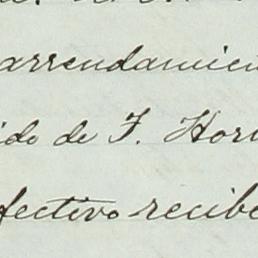 arrendamien
ido de F. Horn
fectivo recibe